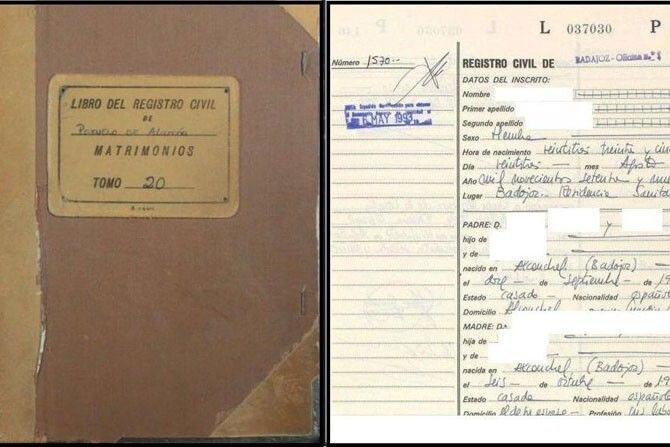 LIBRO DEL REGISTRO CIVIL
DE
Pozuelo de Alarcón
MATRIMONIOS
TOMO 20
L 037030 P
Número 1570.-
6 MAY 1993
REGISTRO CIVIL DE BADAJOZ-Oficina n.º 1
DATOS DEL INSCRITO:
Nombre
Primer apellido
Segundo apellido
Sexo Hembra
Hora de nacimiento veintitres treinta y cin
Día veintitres — mes Agosto
Año mil novecientos setenta y nu
Lugar Badajoz. Residencia Sanita
PADRE: D. y
hijo de
y de
nacido en Alconchel (Badajoz) —
el doce — de Septiembre — de 19
Estado casado — Nacionalidad española
Domicilio Alconchel
MADRE: Dª
hija de
y de
nacida en Alconchel (Badajoz) —
el seis — de octubre — de 19
Estado casada Nacionalidad española
Domicilio el de su esposo — Profesión sus labo